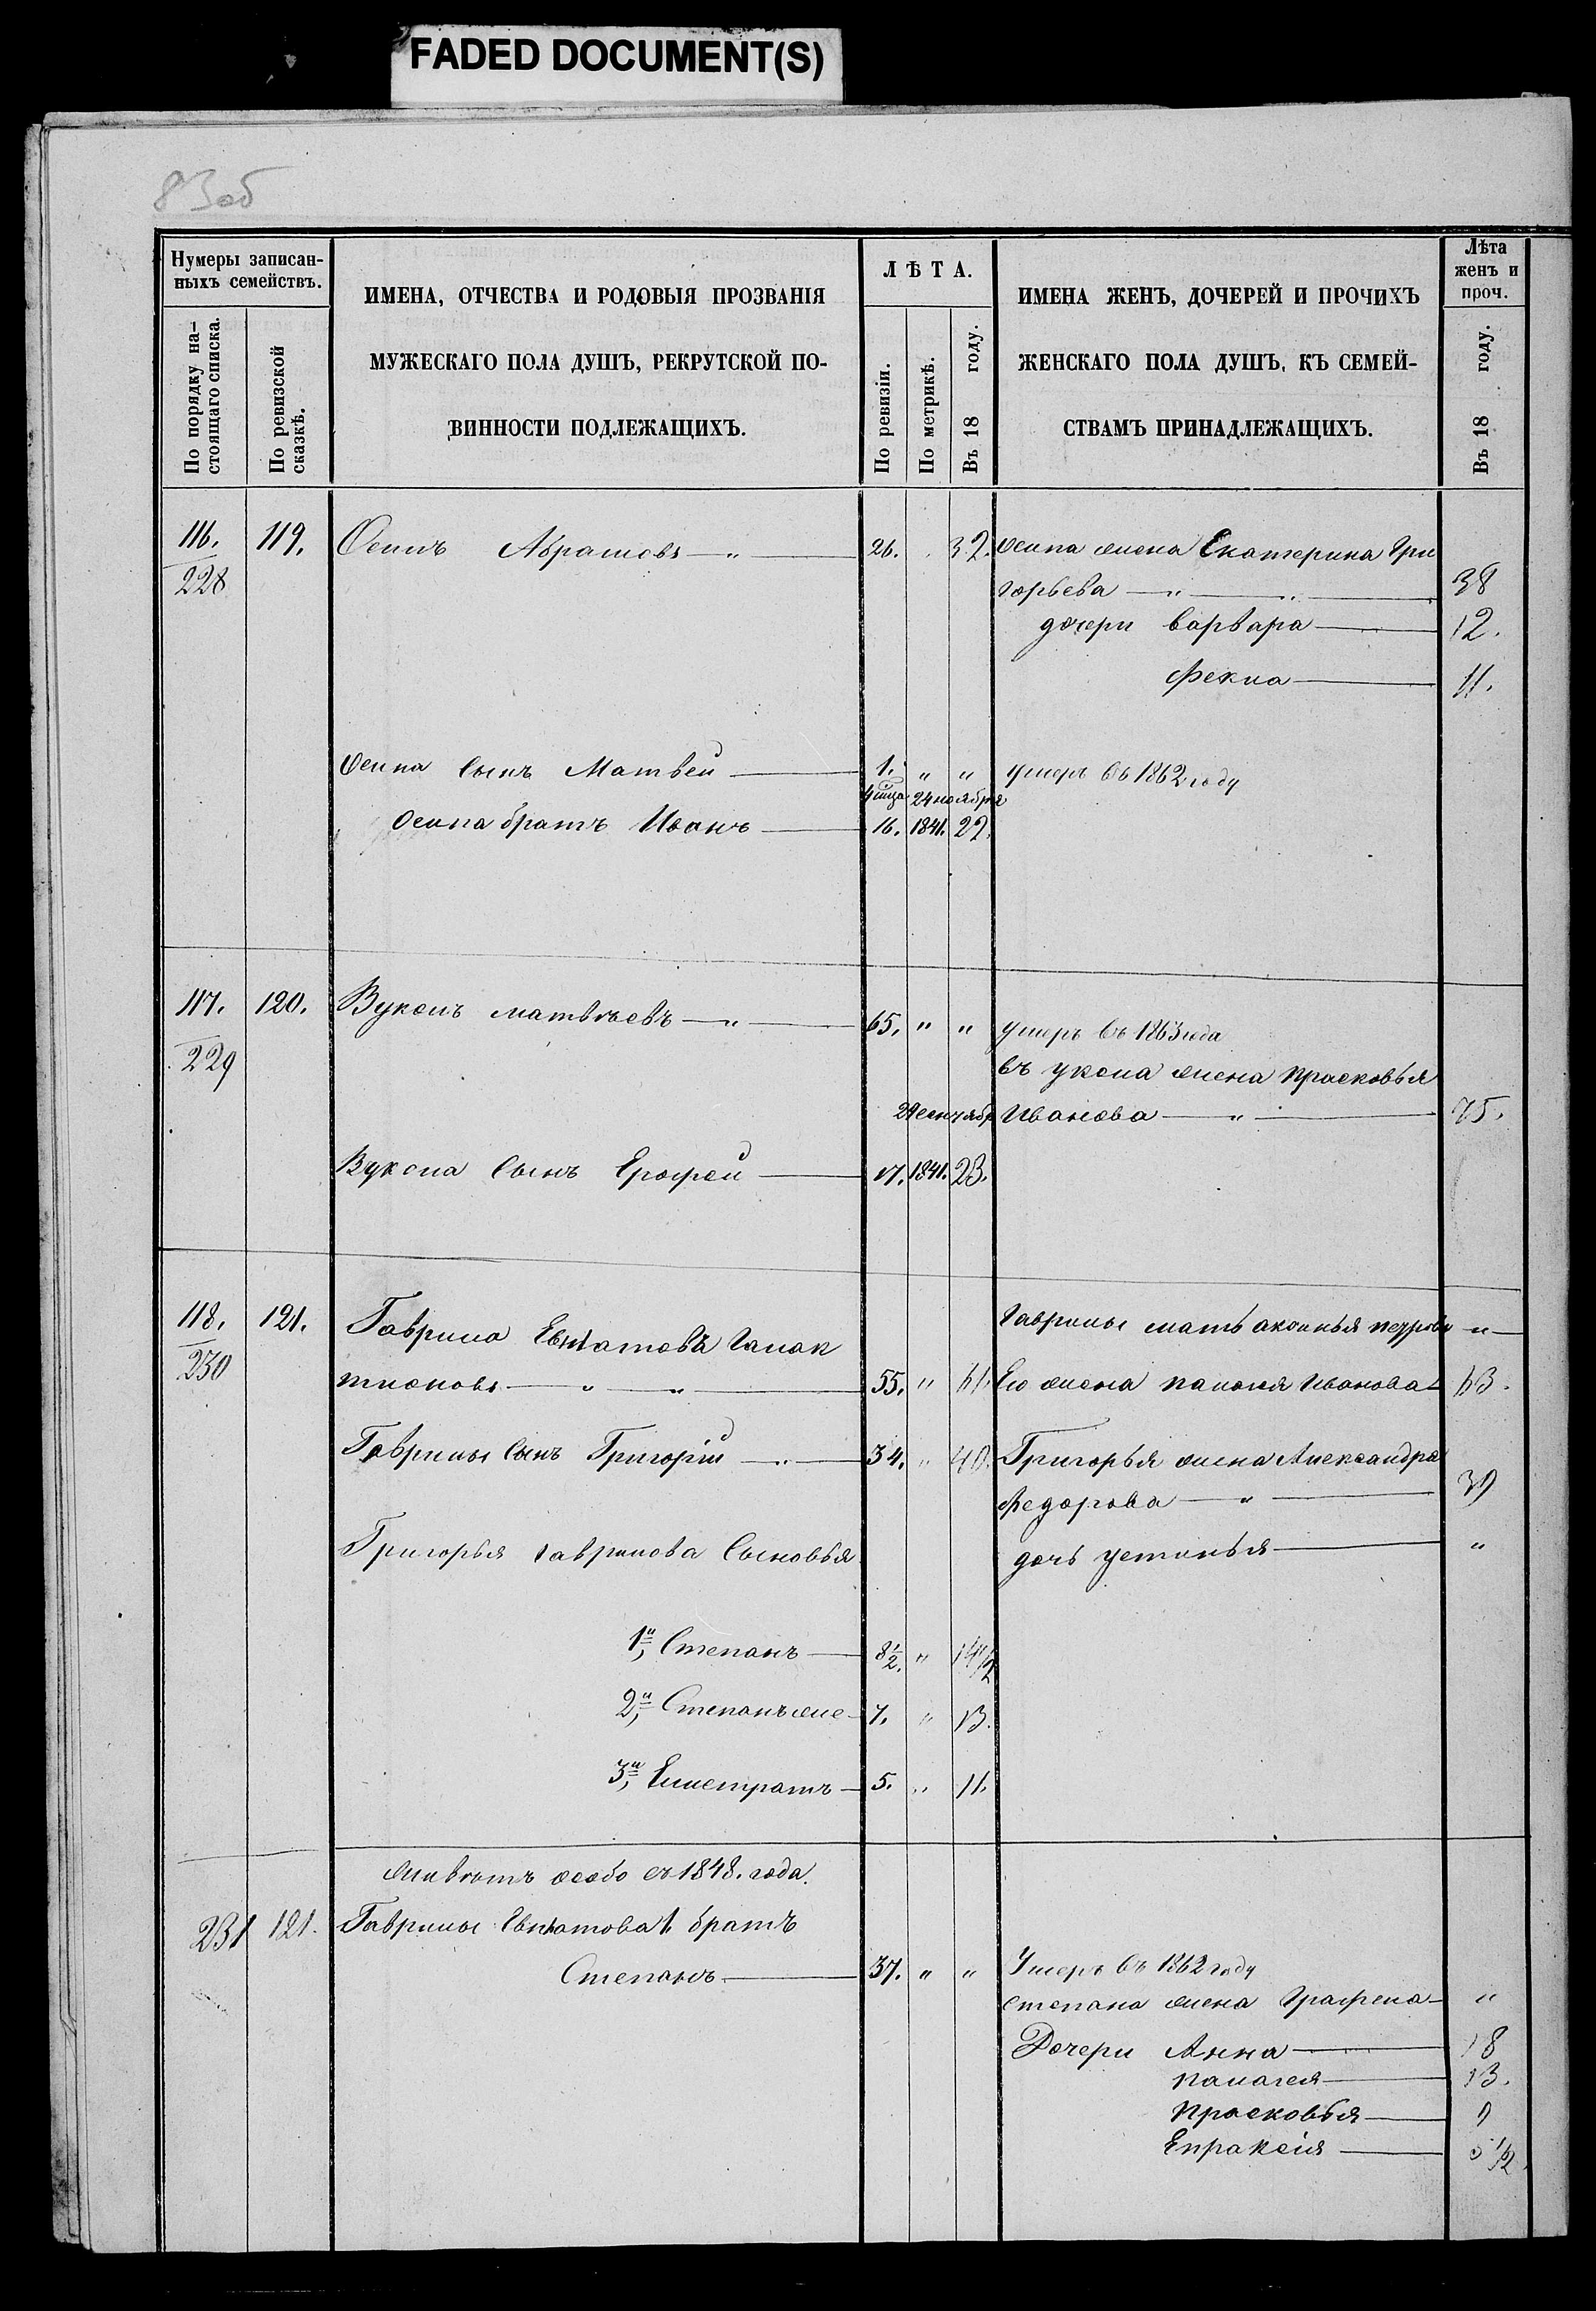 FADED DOCUMENT(S)
83об
Нумеры записан-
ныхъ семействъ.
По порядку на-
стоящаго списка.
По ревизской
сказкѣ.
ИМЕНА, ОТЧЕСТВА И РОДОВЫЯ ПРОЗВАНІЯ
МУЖЕСКАГО ПОЛА ДУШЪ, РЕКРУТСКОЙ ПО-
ВИННОСТИ ПОДЛЕЖАЩИХЪ.
ЛѢТА.
По ревизіи.
По метрикѣ.
Въ 18 году.
ИМЕНА ЖЕНЪ, ДОЧЕРЕЙ И ПРОЧИХЪ
ЖЕНСКАГО ПОЛА ДУШЪ, КЪ СЕМЕЙ-
СТВАМЪ ПРИНАДЛЕЖАЩИХЪ.
Лѣта
женъ и
проч.
Въ 18 году.
116. 119. Осипъ Абрамовъ — " — 26. 32. Осипа жена Екатерина Гри
228 горьева — " — " — 38
дочери варвара — 12.
Фекла — 11.
Осипа сынъ Матвей — 1. " " умеръ въ 1862 году
24 ноября
Осипа братъ Иванъ — 16. 1841. 22.
117. 120. Вуколъ матвѣевъ — " — 65. " " умеръ въ 1863 года
229 въ укола жена прасковья
сентябр Иванова — " — 75.
Вукола сынъ Ерофей — 17. 1841. 23.
118. 121. Гаврила Гаврилы мать
230 55. " 61. Его жена палагея Иванова 63.
Гаврилы сынъ Григорій — " — 34. " 40. Григорья жена Александра
Федорова — " — 39
Григорья гаврилова сыновья дочь устинья — "
1й, Степанъ — 8½. " 14½
2й, Степанъ же — 7. " 13.
3й, — 5. " 11.
живетъ особо съ 1848. года.
231 121. Гаврилы братъ
Степанъ — 37. " " Умеръ въ 1862 году
степана жена Графена — "
Дочери Анна — 18
палагея — 13.
прасковья — 9
Епраксія — 5½